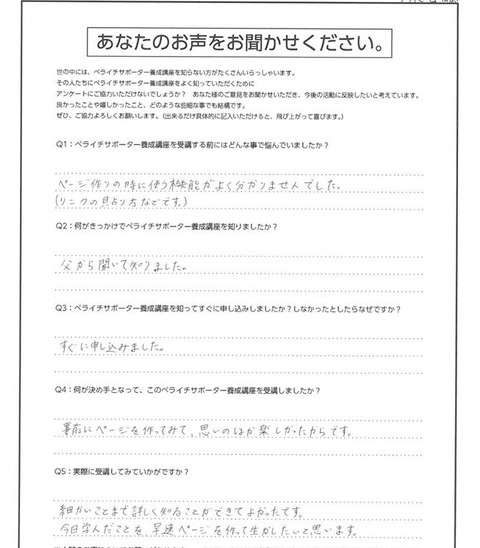 あなたのお声をお聞かせください。
世の中には、ペライチサポーター養成講座を知らない方がたくさんいらっしゃいます。
その人たちにペライチサポーター養成講座をよく知っていただくために
アンケートにご協力いただけないでしょうか? あなた様のご意見をお聞かせいただき、今後の活動に反映したいと考えています。
良かったことや嬉しかったこと、どのような些細な事でも結構です。
ぜひ、ご協力よろしくお願いします。(出来るだけ具体的に記入いただけると、飛び上がって喜びます。)
Q1:ペライチサポーター養成講座を受講する前にはどんな事で悩んでいましたか?
ページ作りの時に使う機能がよく分かりませんでした。
(リンクの貼り方などです。)
Q2:何がきっかけでペライチサポーター養成講座を知りましたか?
父から聞いて知りました。
Q3:ペライチサポーター養成講座を知ってすぐに申し込みしましたか?しなかったとしたらなぜですか?
すぐに申し込みました。
Q4:何が決め手となって、このペライチサポーター養成講座を受講しましたか?
事前にページを作ってみて、思いのほか楽しかったからです。
Q5:実際に受講してみていかがですか?
細かいことまで詳しく知ることができてよかったです。
今日学んだことを早速ページを作って生かしたいと思います。